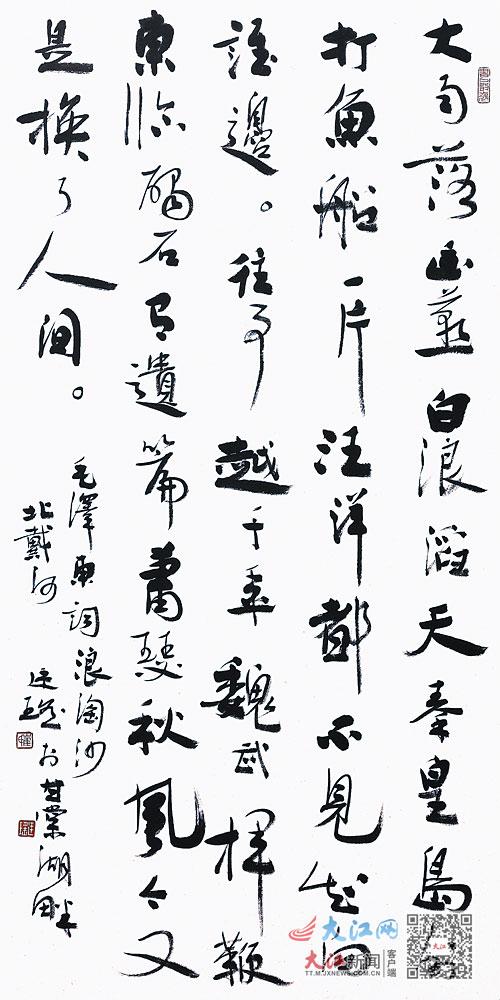 大雨落幽燕白浪滔天秦皇島
打魚船一片汪洋都不見知向
誰邊。往事越千年魏武揮鞭
東臨碣石有遺篇蕭瑟秋風今又
是換了人間。
毛澤東詞浪淘沙
北戴河 於甘棠湖畔
大江网
大江新闻 客户端
TT.M.JXNEWS.COM.CN